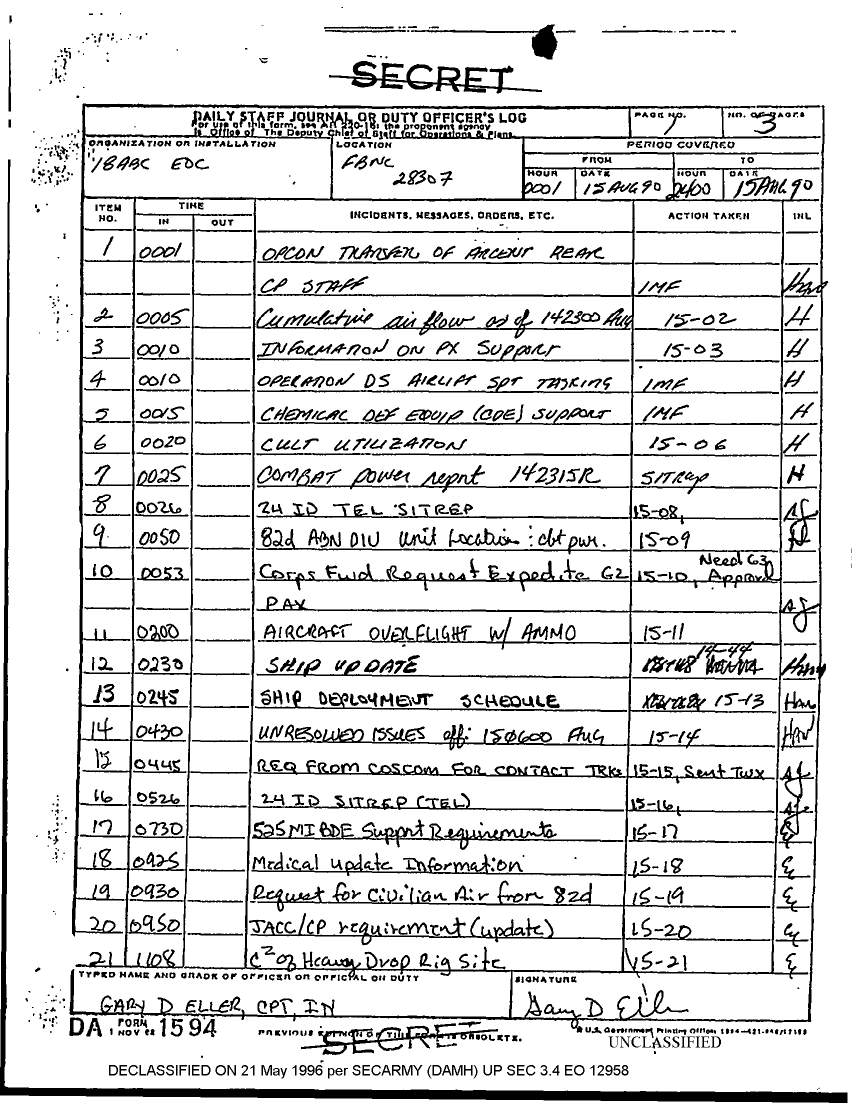 SECRET
DAILY STAFF JOURNAL OR DUTY OFFICER'S LOG
For use of this form, see AR 220-15; the proponent agency
is Office of The Deputy Chief of Staff for Operations & Plans.
PAGE NO. 1
NO. OF PAGES 3
ORGANIZATION OR INSTALLATION
18ABC EOC
LOCATION
FBNC
28307
PERIOD COVERED
FROM TO
HOUR 0001 DATE 15 AUG 90 HOUR 2400 DATE 15 AUG 90
ITEM NO. TIME IN OUT INCIDENTS, MESSAGES, ORDERS, ETC. ACTION TAKEN INL
1 0001 OPCON TRANSFER OF ARCENT REAR
CP STAFF IMF
2 0005 Cumulative air flow as of 142300 Aug 15-02 H
3 0010 INFORMATION ON PX Support 15-03 H
4 0010 OPERATION DS AIRLIFT SPT TASKING IMF H
5 0015 CHEMICAL DEF EQUIP (CDE) SUPPORT IMF H
6 0020 CULT UTILIZATION 15-06 H
7 0025 COMBAT power report 142315R SITRep H
8 0026 24 ID TEL SITREP 15-08,
9 0050 82d ABN DIV Unit Location : cbt pwr. 15-09
10 0053 Corps Fwd Request Expedite G2 15-10, Need G3 Approval
PAX
11 0200 AIRCRAFT OVERFLIGHT W/ AMMO 15-11
12 0230 SHIP UPDATE 14-44
13 0245 SHIP DEPLOYMENT SCHEDULE 15-13 HAW
14 0430 UNRESOLVED ISSUES eff: 150600 AUG 15-14 HAW
15 0445 REQ FROM COSCOM FOR CONTACT TRKS 15-15, Sent TWX
16 0526 24 ID SITREP (TEL) 15-16,
17 0730 525 MI BDE Support Requirements 15-17
18 0925 Medical Update Information 15-18
19 0930 Request for Civilian Air from 82d 15-19
20 0950 JACC/CP requirement (update) 15-20
21 1108 C2 of Heavy Drop Rig Site 15-21
TYPED NAME AND GRADE OF OFFICER OR OFFICIAL ON DUTY
GARY D ELLER, CPT, IN
SIGNATURE
Gary D Eller
DA FORM 1594
1 NOV 62
PREVIOUS EDITION OF THIS FORM IS OBSOLETE.
SECRET
U.S. Government Printing Office:
UNCLASSIFIED
DECLASSIFIED ON 21 May 1996 per SECARMY (DAMH) UP SEC 3.4 EO 12958